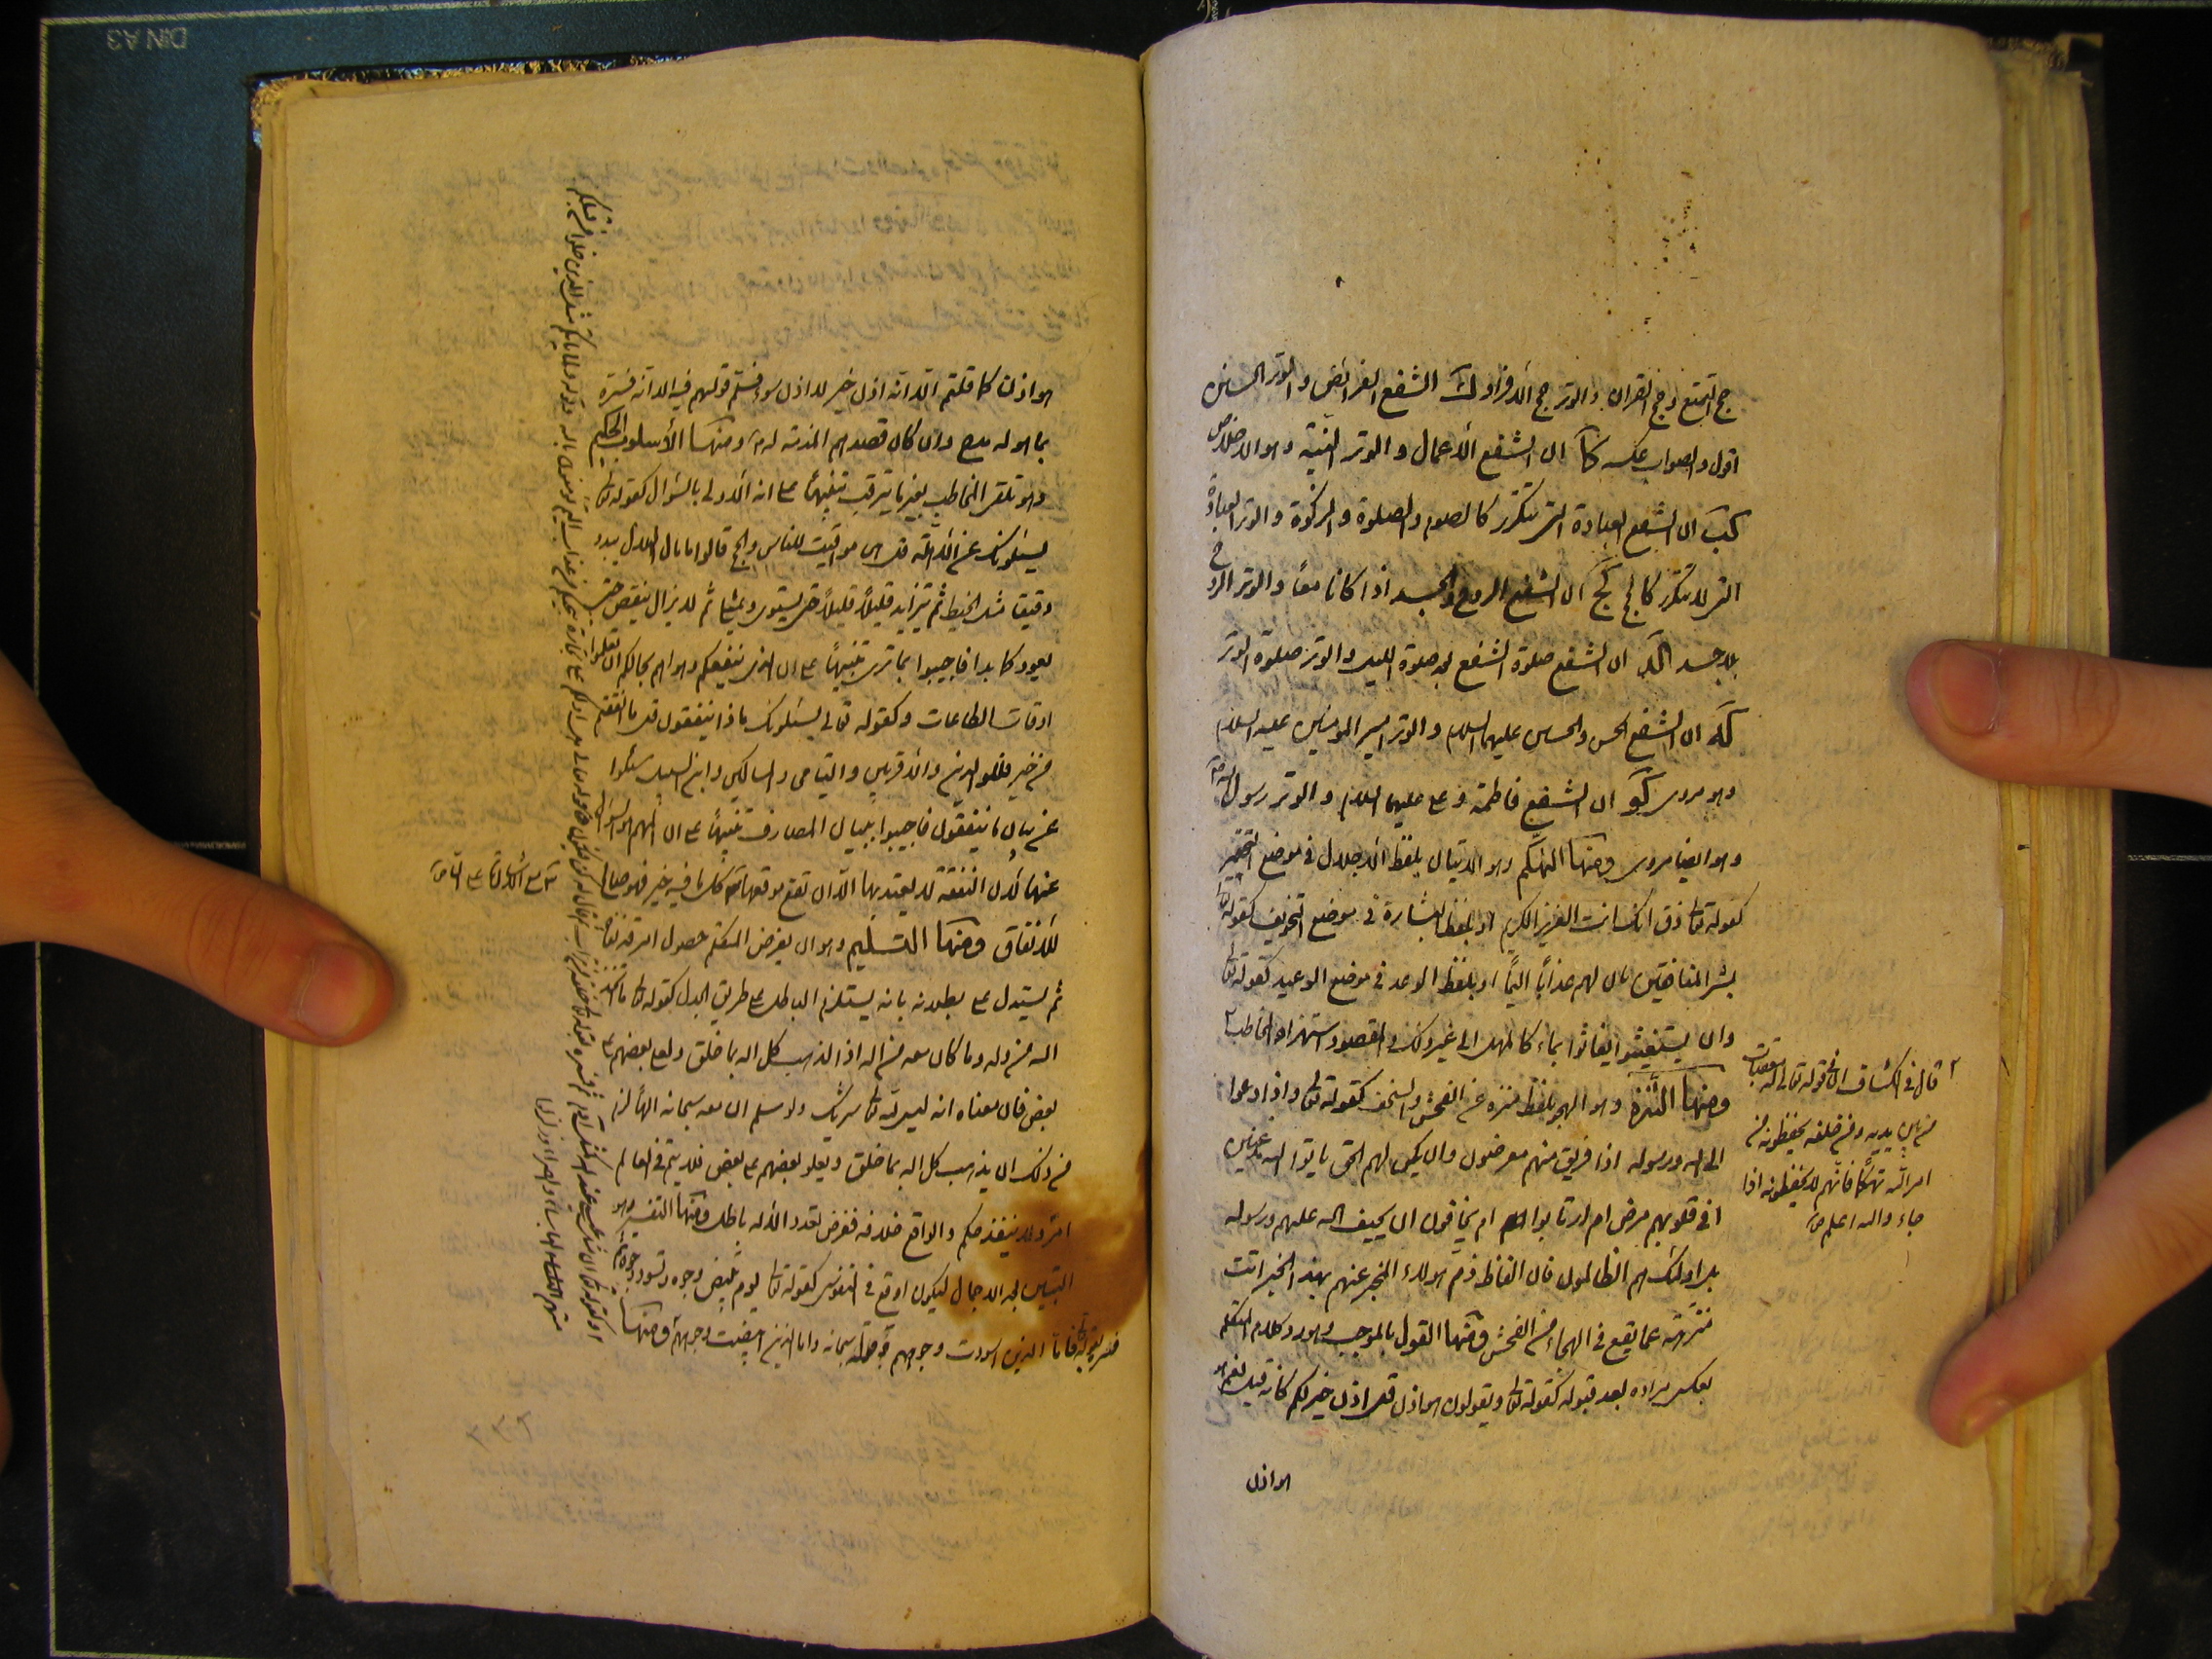 حج التمتع وحج القران والوتر حج الافراد كط الشفع الفرائض والوتر السنن
اقول والصواب عكسه كا ان الشفع الاعمال والوتر النية وهو الاخلاص
كب ان الشفع العبادة التي تتكرر كالصوم والصلوة والزكوة والوتر العبادة
التي لا تتكرر كالحج كج ان الشفع الروح والجسد اذا كانا معا والوتر الروح
بلا جسد كد ان الشفع صلوة الشفع بعد صلوة الليل والوتر صلوة الوتر
كه ان الشفع الحسن والحسين عليهما السلام والوتر امير المومنين عليه السلام
وهو مروى كو ان الشفع فاطمة وعلى عليهما السلام والوتر رسول الله
وهو ايضا مروى ومنها التهكم وهو الاتيان بلفظ الاجلال فى موضع التحقير
كقوله تعالى ذق انك انت العزيز الكريم او بلفظ البشارة فى موضع التخويف كقوله تعالى
بشر المنافقين بان لهم عذابا اليما او بلفظ الوعد فى موضع الوعيد كقوله تعالى
وان يستغيثوا يغاثوا بماء كالمهل الى غير ذلك والمقصود استهزاء المخاطب
ومنها التنزه وهو الهجو بلفظ منزه عن الفحش والسخف كقوله تعالى واذا دعوا
الى الله ورسوله اذا فريق منهم معرضون وان يكن لهم الحق ياتوا اليه مذعنين
افى قلوبهم مرض ام ارتابوا ام يخافون ان يحيف الله عليهم ورسوله
بل اولئك هم الظالمون فان الفاظ ذم هؤلاء المخبر عنهم بهذا الخبر اتت
منزهة عما يقع فى الهجاء من الفحش ومنها القول بالموجب وهو رد كلام المتكلم
بعكس مراده بعد قبوله كقوله تعالى ويقولون هو اذن قل اذن خير لكم كانه قيل نعم هو
هو اذن
٢ قال فى الكشاف ان قوله تعالى له معقبات
من بين يديه ومن خلفه يحفظونه من
امر الله تهكم فانهم لا يحفظونه اذا
جاء والله اعلم
هو اذن كما قلتم الا انه اذن خير لا اذن سوء فسلم قولهم فيه الا انه فسره
بما هو له مدح وان كان قصدهم المذمة له ومنها الأسلوب الحكيم
وهو تلقى المخاطب بغير ما يترقب تنبيها على انه الاولى بالسؤال كقوله تعالى
يسئلونك عن الاهلة قل هى مواقيت للناس والحج قالوا ما بال الهلال يبدو
دقيقا مثل الخيط ثم يتزايد قليلا قليلا حتى يستوى ويمتلى ثم لا يزال ينقص حتى
يعود كما بدا فاجيبوا بما ترى تنبيها على ان الذى ينفعكم وهو اهم بحالكم ان تعلموا
اوقات الطاعات وكقوله تعالى يسئلونك ماذا ينفقون قل ما انفقتم
من خير فللوالدين والاقربين واليتامى والمساكين وابن السبيل سئلوا
عن بيان ما ينفقون فاجيبوا ببيان المصارف تنبيها على ان المهم هو السؤال
عنها لان النفقة لا يعتد بها الا ان تقع موقعها وكل ما فيه خير فهو صالح
للانفاق ومنها التسليم وهو ان يفرض المتكلم حصول امر قد نفاه
ثم يستدل على بطلانه بانه يستلزم الباطل على طريق الجدل كقوله تعالى ما اتخذ
الله من ولد وما كان معه من اله اذا لذهب كل اله بما خلق ولعلا بعضهم على
بعض فان معناه انه ليس لله تعالى شريك ولو سلم ان معه سبحانه الها لزم
من ذلك ان يذهب كل اله بما خلق ويعلو بعضهم على بعض فلا يتم فى العالم
امر ولا ينفذ حكم والواقع خلافه ففرض تعدد الاله باطل ومنها التفسير وهو
التبيين بعد الاجمال ليكون اوقع فى النفوس كقوله تعالى يوم تبيض وجوه وتسود وجوه
فسره بقوله فاما الذين اسودت وجوههم وقوله سبحانه واما الذين ابيضت وجوههم ومنها